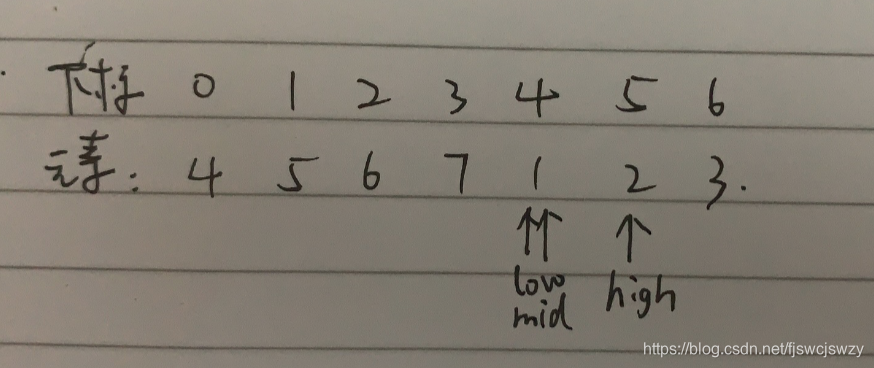 下标 0 1 2 3 4 5 6
元素: 4 5 6 7 1 2 3.
↑↑ ↑
low high
mid
https://blog.csdn.net/fjswcjswzy